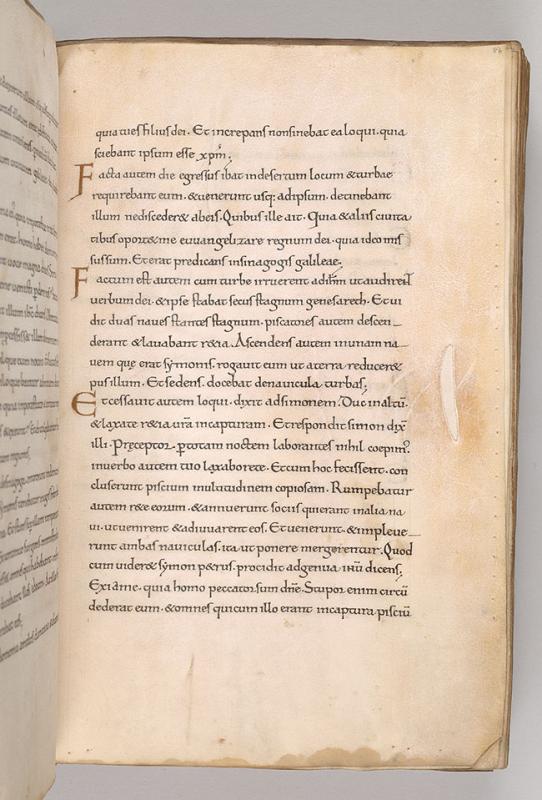 86
quia tu es filius dei. Et increpans non sinebat ea loqui. quia
sciebant ipsum esse xpm;
Facta autem die egressus ibat in desertum locum & turbae
requirebant eum. & uenerunt usq; ad ipsum. detinebant
illum ne discederet ab eis. Quibus ille ait. Quia & aliis ciuita
tibus oport& me euuangelizare regnum dei. quia ideo mis
sus sum. Et erat predicans in sinagogis galileae;
Factum est autem cum turbe irruerent ad ihm ut audirent
uerbum dei. & ipse stabat secus stagnum genesareth. Et ui
dit duas naues stantes stagnum. piscatores autem descen
derant & lauabant r&ia. Ascendens autem in unam na
uem que erat symonis. rogauit eum ut a terra reducer&
pusillum. Et sedens. docebat de nauicula turbas;
Et cessauit autem loqui. dixit ad simonem. Duc in altū.
& laxate r&ia urā in capturam. Et respondit simon dix̄
illi. Preceptor. p totam noctem laborantes nihil coepim;
in uerbo autem tuo laxabo rete. Et cum hoc fecissent. con
cluserunt piscium multitudinem copiosam. Rumpebatur
autem r&e eorum. & annuerunt sociis qui erant in alia na
ui. ut uenirent & adiuuarent eos. Et uenerunt. & impleue
runt ambas nauiculas. ita ut penere mergerentur. Quod
cum uider& symon p&rus. procidit ad genua ihū dicens;
Exi a me. quia homo peccator sum dn̄e. Stupor enim circū
dederat eum. & omnes qui cum illo erant in captura pisciū